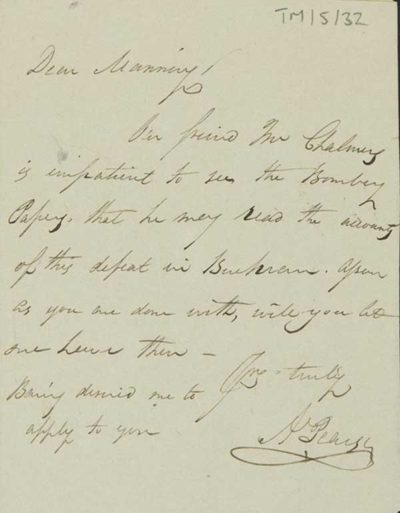 TM/5/32
Dear Manning
Our friend Mr Chalmers
is impatient to see the Bombay
Papers, that he may read the accounts
of this defeat in Buchran. As soon
as you are done with, will you let
me have them –
Yrs truly
Being desired me to
apply to you